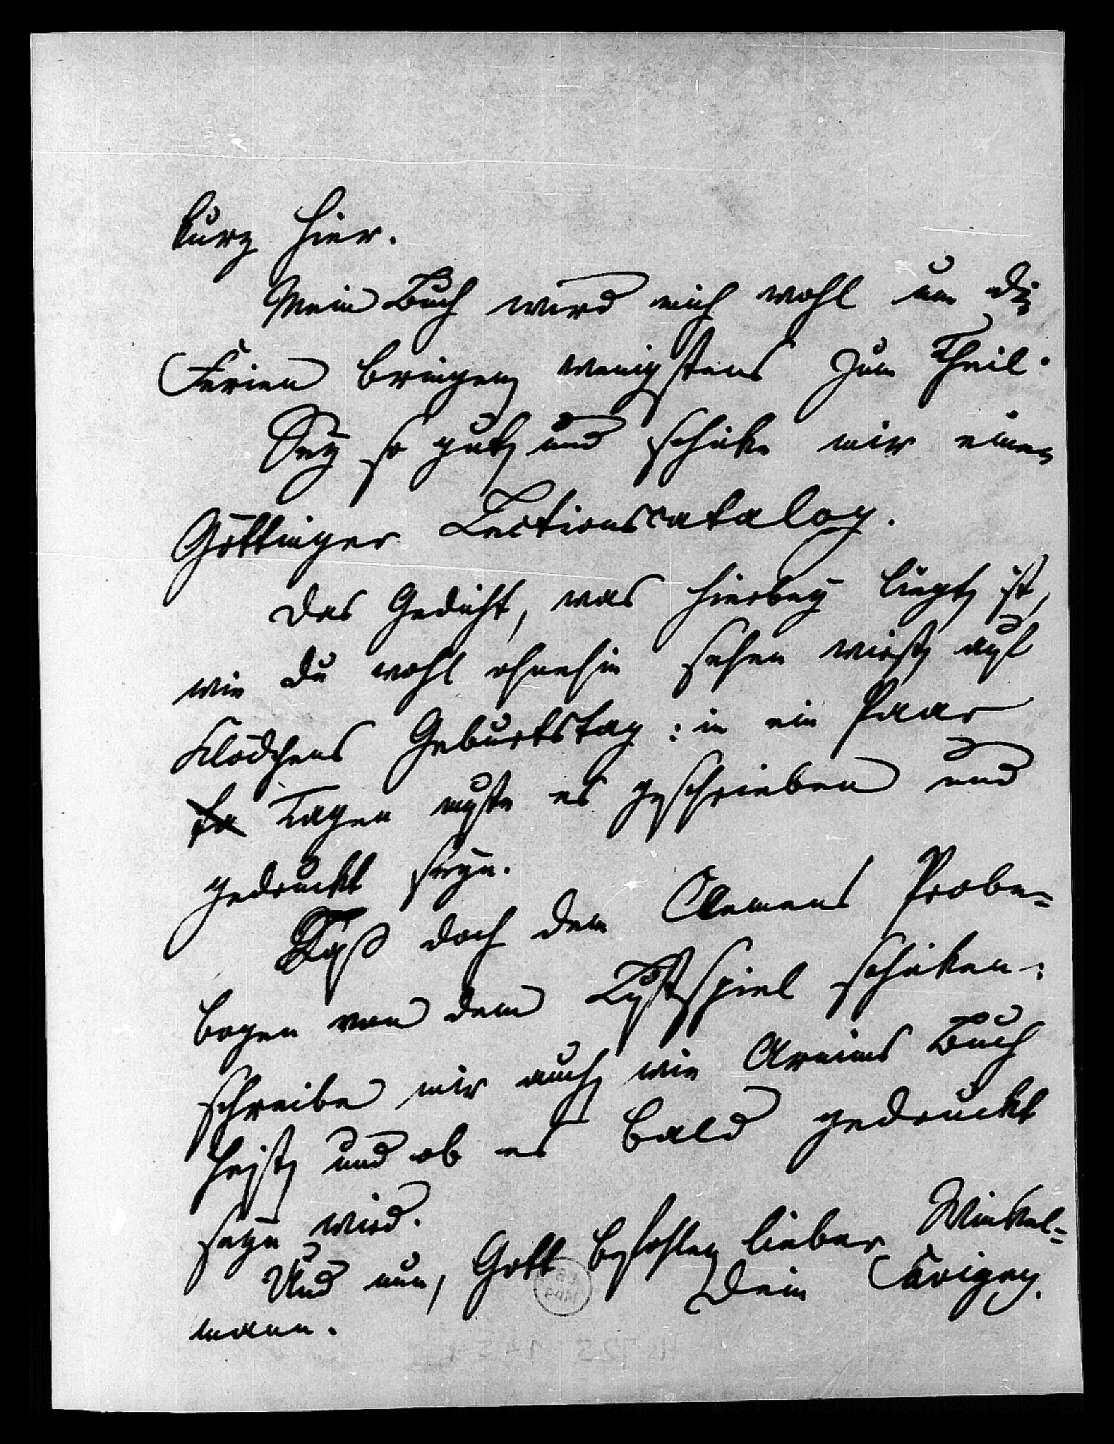 burg hier.
Mein Buch wird mich wohl um die
Ferien bringen wenigstens zum Theil.
Sey so gut und schicke mir einen
Göttinger Lectionscatalog.
Das Gedicht, was hierbey liegt ist,
wie Du wohl ohnehin sehen wirst auf
Klödchens Geburtstag: in ein Paar
Tagen muste es geschrieben und
gedruckt seyn.
Laß doch dem Clemens Probe=
bogen von dem Lustspiel schicken:
schreibe mir auch wie Arnims Buch
heist und ob es bald gedruckt
seyn wird.
Und nun, Gott befohlen lieber Winkel=
mann. Dein Savigny.